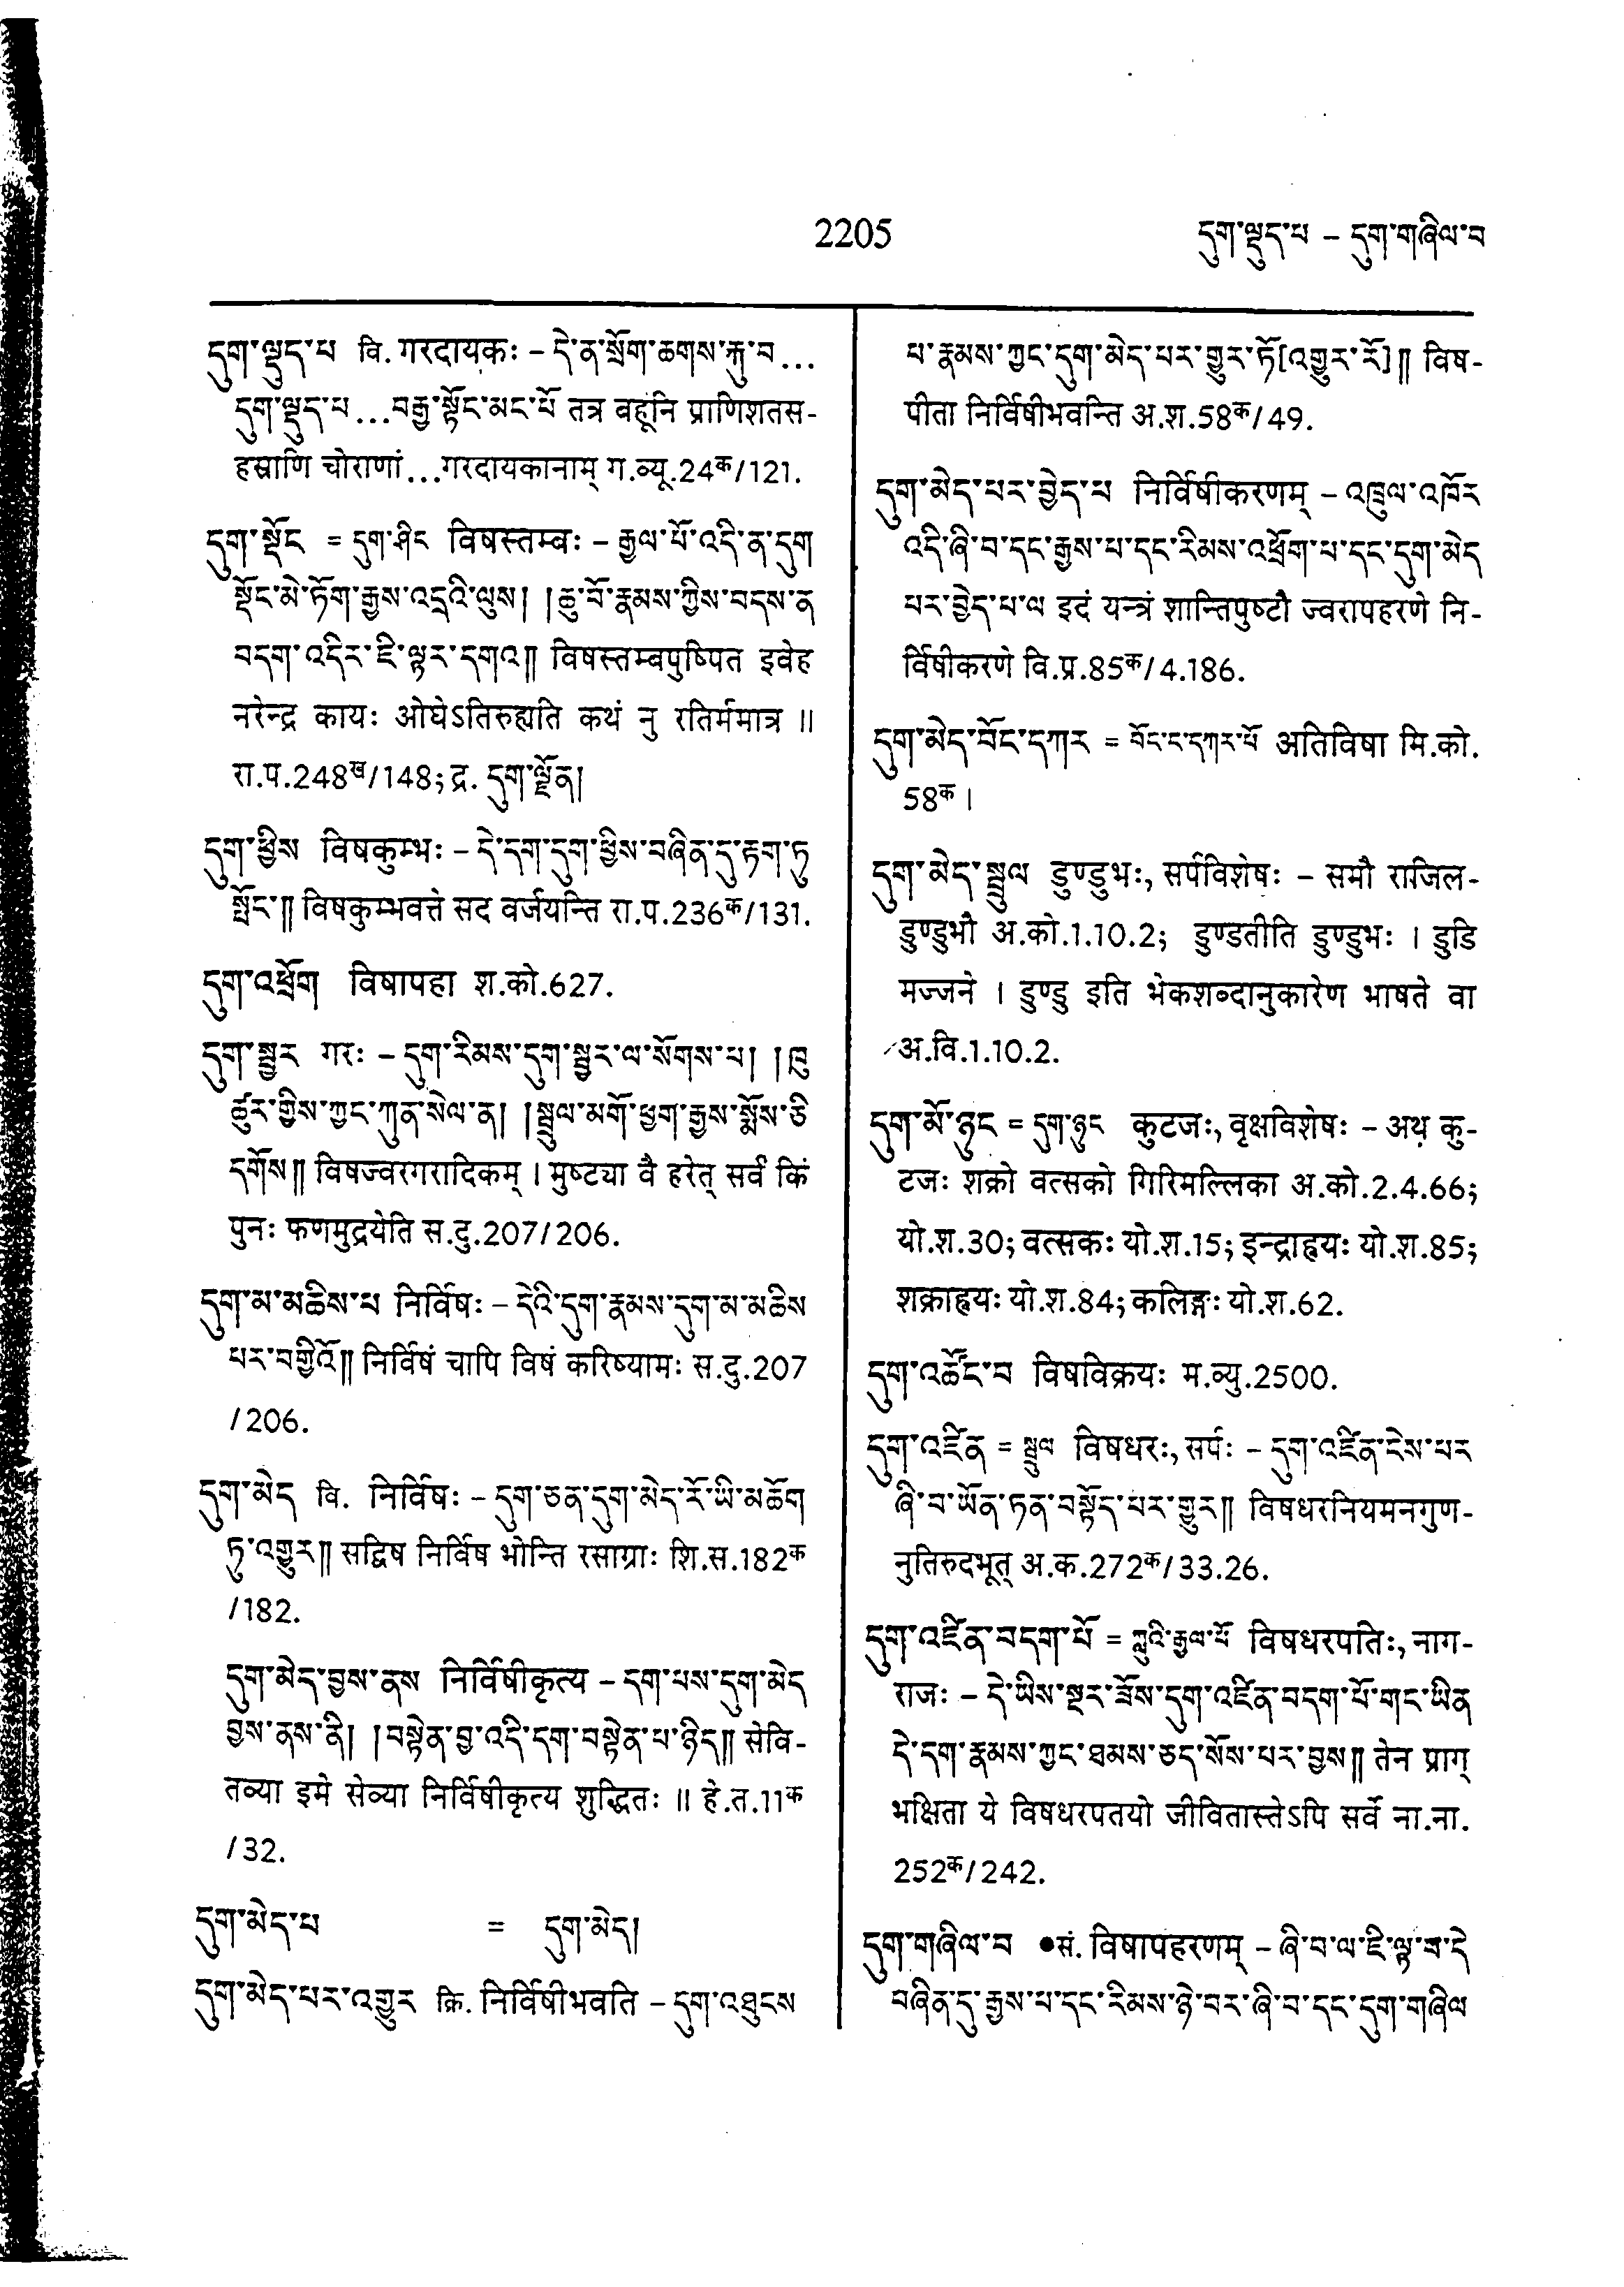 2205
དུག་ལྡུད་པ – དུག་གཞིལ་བ
དུག་ལྡུད་པ वि. गरदायकः – དེ་ན་སྲོག་ཆགས་རྐུ་བ...
དུག་ལྡུད་པ...བརྒྱ་སྟོང་མང་པོ तत्र वहूनि प्राणिशतस-
हस्राणि चोराणां...गरदायकानाम् ग.व्यू.24क/121.
དུག་སྡོང = དུག་ཤིང विषस्तम्वः – རྒྱལ་པོ་འདི་ན་དུག
སྡོང་མེ་ཏོག་རྒྱས་འདྲའི་ལུས། །ཆུ་བོ་རྣམས་ཀྱིས་བདས་ན
བདག་འདིར་ཇི་ལྟར་དགའ༎ विषस्तम्वपुष्पित इवेह
नरेन्द्र कायः ओघेऽतिरुह्यति कथं नु रतिर्ममात्र ॥
रा.प.248ख/148; द्र. དུག་ལྗོན།
དུག་ཕྱིས विषकुम्भः – དེ་དག་དུག་ཕྱིས་བཞིན་དུ་རྟག་ཏུ
སྤོང་༎ विषकुम्भवत्ते सद वर्जयन्ति रा.प.236क/131.
དུག་འཕྲོག विषापहा श.को.627.
དུག་སྦྱར गरः – དུག་རིམས་དུག་སྦྱར་ལ་སོགས་པ། །ཁུ
ཚུར་གྱིས་ཀྱང་ཀུན་སེལ་ན། །སྦྲུལ་མགོ་ཕྱག་རྒྱས་སྨོས་ཅི
དགོས༎ विषज्वरगरादिकम् । मुष्ट्या वै हरेत् सर्वं किं
पुनः फणमुद्रयेति स.दु.207/206.
དུག་མ་མཆིས་པ निर्विषः – དེའི་དུག་རྣམས་དུག་མ་མཆིས
པར་བགྱིའོ༎ निर्विषं चापि विषं करिष्यामः स.दु.207
/206.
དུག་མེད वि. निर्विषः – དུག་ཅན་དུག་མེད་རོ་ཡི་མཆོག
ཏུ་འགྱུར༎ सद्विष निर्विष भोन्ति रसाग्राः शि.स.182क
/182.
དུག་མེད་བྱས་ནས निर्विषीकृत्य – དག་པས་དུག་མེད
བྱས་ནས་ནི། །བསྟེན་བྱ་འདི་དག་བསྟེན་པ་ཉིད༎ सेवि-
तव्या इमे सेव्या निर्विषीकृत्य शुद्धितः ॥ हे.त.11क
/32.
དུག་མེད་པ = དུག་མེད།
དུག་མེད་པར་འགྱུར क्रि. निर्विषीभवति – དུག་འཐུངས
པ་རྣམས་ཀྱང་དུག་མེད་པར་གྱུར་ཏོ[འགྱུར་རོ]༎ विष-
पीता निर्विषीभवन्ति अ.श.58क/49.
དུག་མེད་པར་བྱེད་པ निर्विषीकरणम् – འཁྲུལ་འཁོར
འདི་ཞི་བ་དང་རྒྱས་པ་དང་རིམས་འཕྲོག་པ་དང་དུག་མེད
པར་བྱེད་པ་ལ इदं यन्त्रं शान्तिपुष्टौ ज्वरापहरणे नि-
र्विषीकरणे वि.प्र.85क/4.186.
དུག་མེད་བོང་དཀར = བོང་ང་དཀར་པོ अतिविषा मि.को.
58क ।
དུག་མེད་སྦྲུལ डुण्डुभः, सर्पविशेषः – समौ राजिल-
डुण्डुभौ अ.को.1.10.2; डुण्डतीति डुण्डुभः । डुडि
मज्जने । डुण्डु इति भेकशब्दानुकारेण भाषते वा
अ.वि.1.10.2.
དུག་མོ་ཉུང = དུག་ཉུང कुटजः, वृक्षविशेषः – अथ कु-
टजः शक्रो वत्सको गिरिमल्लिका अ.को.2.4.66;
यो.श.30; वत्सकः यो.श.15; इन्द्राह्वयः यो.श.85;
शक्राह्वयः यो.श.84; कलिङ्गः यो.श.62.
དུག་འཚོང་བ विषविक्रयः म.व्यु.2500.
དུག་འཛིན = སྦྲུལ विषधरः, सर्पः – དུག་འཛིན་ངེས་པར
ཞི་བ་ཡོན་ཏན་བསྟོད་པར་གྱུར༎ विषधरनियमनगुण-
नुतिरुदभूत् अ.क.272क/33.26.
དུག་འཛིན་བདག་པོ = ཀླུའི་རྒྱལ་པོ विषधरपतिः, नाग-
राजः – དེ་ཡིས་སྔར་ཟོས་དུག་འཛིན་བདག་པོ་གང་ཡིན
དེ་དག་རྣམས་ཀྱང་ཐམས་ཅད་སོས་པར་བྱས༎ तेन प्राग्
भक्षिता ये विषधरपतयो जीवितास्तेऽपि सर्वे ना.ना.
252क/242.
དུག་གཞིལ་བ ●सं. विषापहरणम् – ཞི་བ་ལ་ཇི་ལྟ་བ་དེ
བཞིན་དུ་རྒྱས་པ་དང་རིམས་ཉེ་བར་ཞི་བ་དང་དུག་གཞིལ